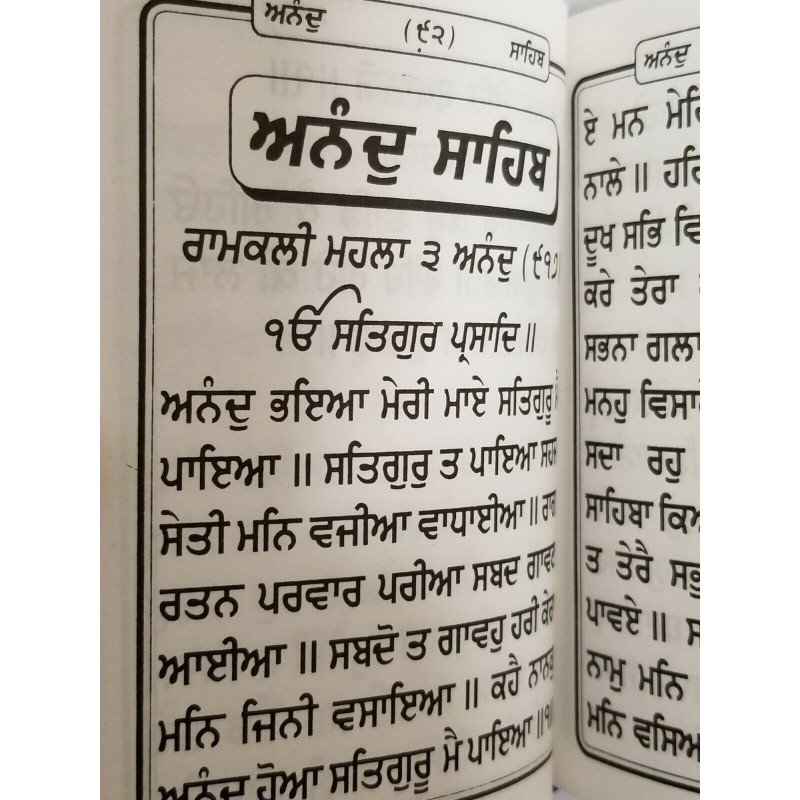 ਅਨੰਦੁ (੯੨) ਸਾਹਿਬ
ਅਨੰਦੁ ਸਾਹਿਬ
ਰਾਮਕਲੀ ਮਹਲਾ ੩ ਅਨੰਦੁ
ੴ ਸਤਿਗੁਰ ਪ੍ਰਸਾਦਿ॥
ਅਨੰਦੁ ਭਇਆ ਮੇਰੀ ਮਾਏ ਸਤਿਗੁਰੂ ਮੈ
ਪਾਇਆ ॥ ਸਤਿਗੁਰੁ ਤ ਪਾਇਆ ਸਹਜ
ਸੇਤੀ ਮਨਿ ਵਜੀਆ ਵਾਧਾਈਆ॥ ਰਾਗ
ਰਤਨ ਪਰਵਾਰ ਪਰੀਆ ਸਬਦ ਗਾਵਣ
ਆਈਆ ॥ ਸਬਦੋ ਤ ਗਾਵਹੁ ਹਰੀ ਕੇਰਾ
ਮਨਿ ਜਿਨੀ ਵਸਾਇਆ ॥ ਕਹੈ ਨਾਨਕੁ
ਅਨੰਦੁ ਹੋਆ ਸਤਿਗੁਰੂ ਮੈ ਪਾਇਆ ॥੧॥
ਅਨੰਦੁ
ਏ ਮਨ
ਨਾਲੇ ॥
ਦੂਖ ਸਭਿ
ਕਰੇ ਤੇਰਾ
ਸਭਨਾ ਗਲਾ
ਮਨਹੁ
ਸਦਾ ਰਹੁ
ਸਾਹਿਬਾ
ਤ ਤੇਰੈ
ਪਾਵਏ ॥
ਨਾਮੁ ਮਨਿ
ਮਨਿ